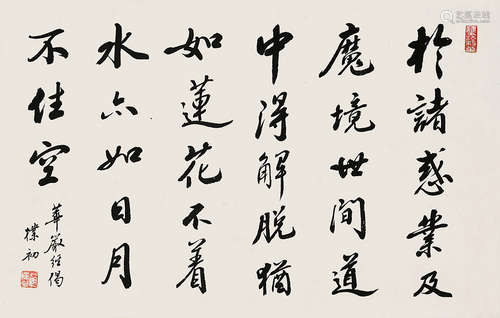 於諸惑業及
魔境世間道
中得解脱猶
如蓮花不着
水亦如日月
不住空
華嚴经偈
樸初